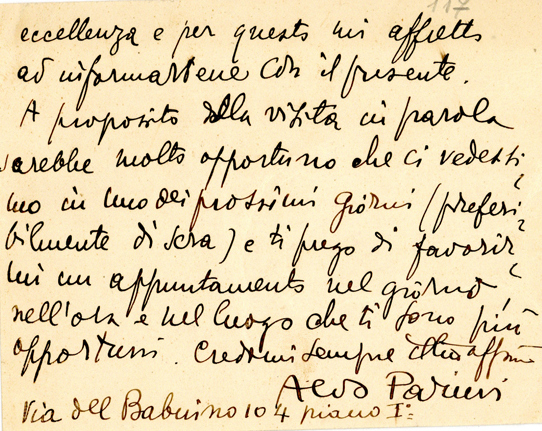 117
eccellenza e per questo mi affretto
ad informartene con il presente.
A proposito della visita in parola
sarebbe molto opportuno che ci vedessi-
mo in uno dei prossimi giorni (preferi-
bilmente di sera) e ti prego di favorir-
mi un appuntamento nel giorno
nell'ora e nel luogo che ti sono più
opportuni. Credimi sempre
Aldo Parini
Via del Babuino 104 piano I°